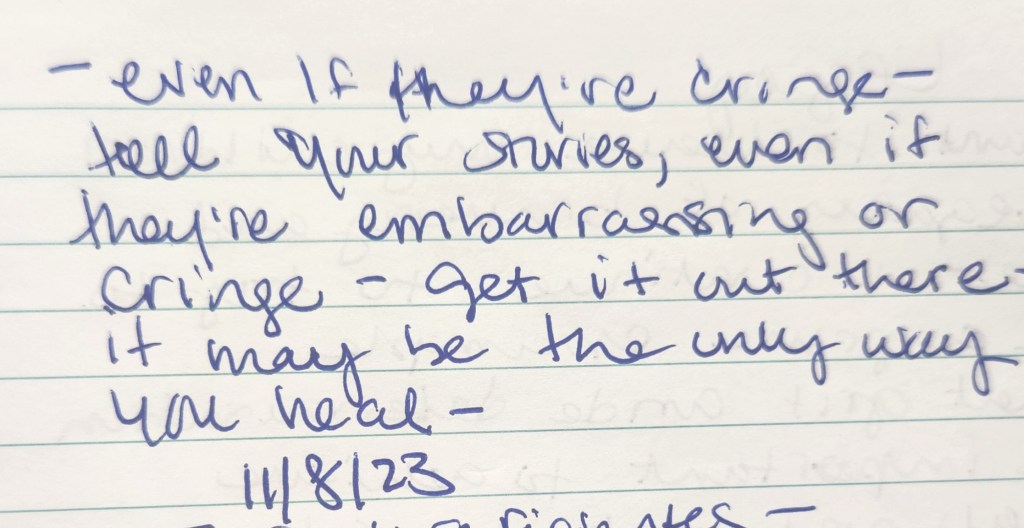 - even if they're cringe -
tell your stories, even if
they're embarrassing or
cringe - get it out there -
it may be the only way
you heal -
11/8/23